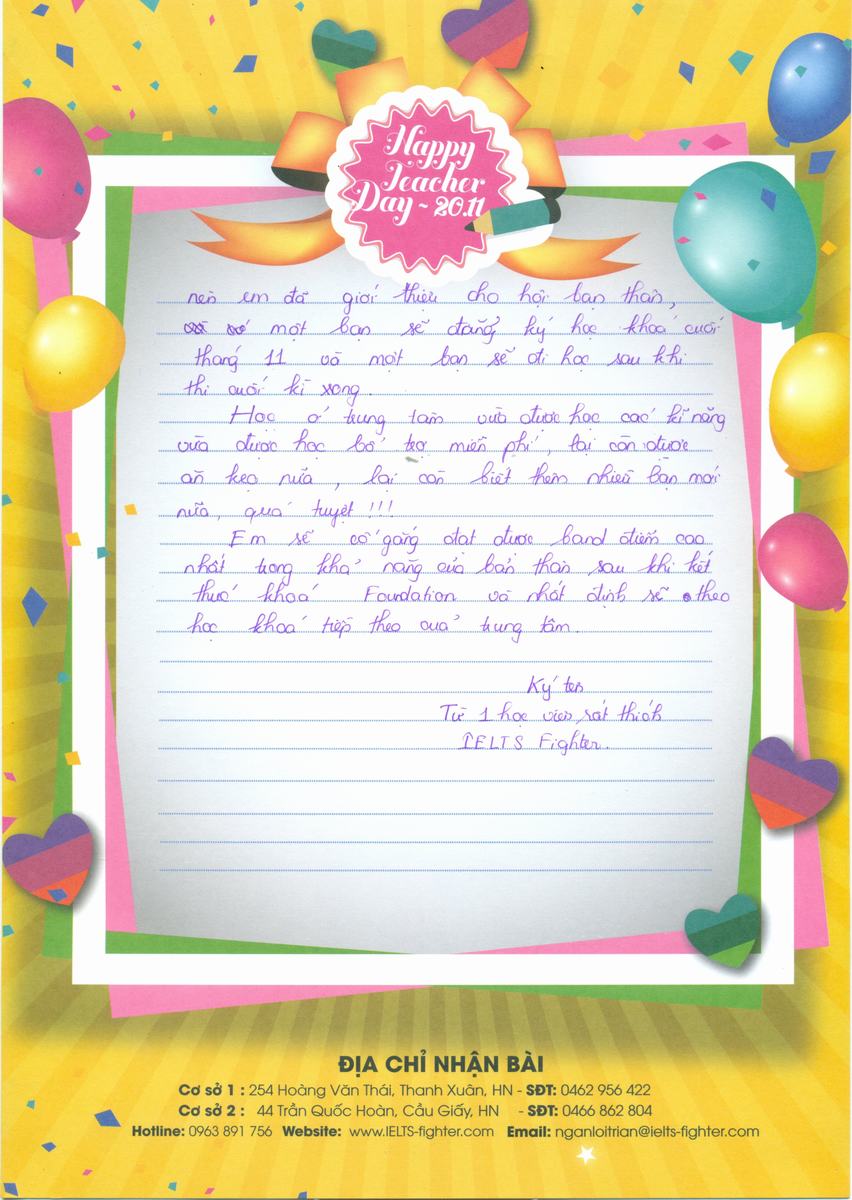 Happy
Teacher
Day ~ 20.11
nên em đã giới thiệu cho hội bạn thân,
một bạn sẽ đăng ký học khoá cuối
tháng 11 và một bạn sẽ đi học sau khi
thi cuối kì xong.
Học ở trung tâm vừa được học các kĩ năng
vừa được học bổ trợ miễn phí, lại còn được
ăn kẹo nữa, lại còn biết thêm nhiều bạn mới
nữa, quá tuyệt !!!
Em sẽ cố gắng đạt được band điểm cao
nhất trong khả năng của bản thân sau khi kết
thúc khoá Foundation và nhất định sẽ theo
học khoá tiếp theo của trung tâm.
Ký tên
Từ 1 học viên rất thích
IELTS Fighter.
ĐỊA CHỈ NHẬN BÀI
Cơ sở 1 : 254 Hoàng Văn Thái, Thanh Xuân, HN - SĐT: 0462 956 422
Cơ sở 2 : 44 Trần Quốc Hoàn, Cầu Giấy, HN - SĐT: 0466 862 804
Hotline: 0963 891 756 Website: www.IELTS-fighter.com Email: nganloitrian@ielts-fighter.com